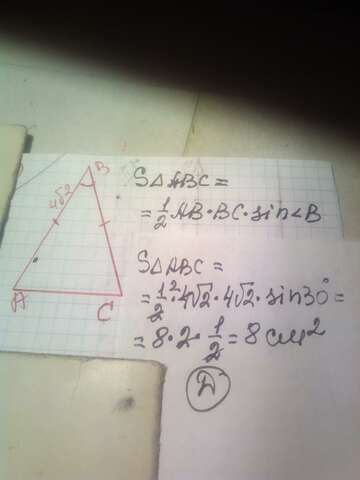 B
4√2
A
C
S△ABC =
= 1/2 AB·BC·sin∠B
S△ABC =
= 1/2·4√2·4√2·sin30° =
= 8·2·1/2 = 8 см²
Д